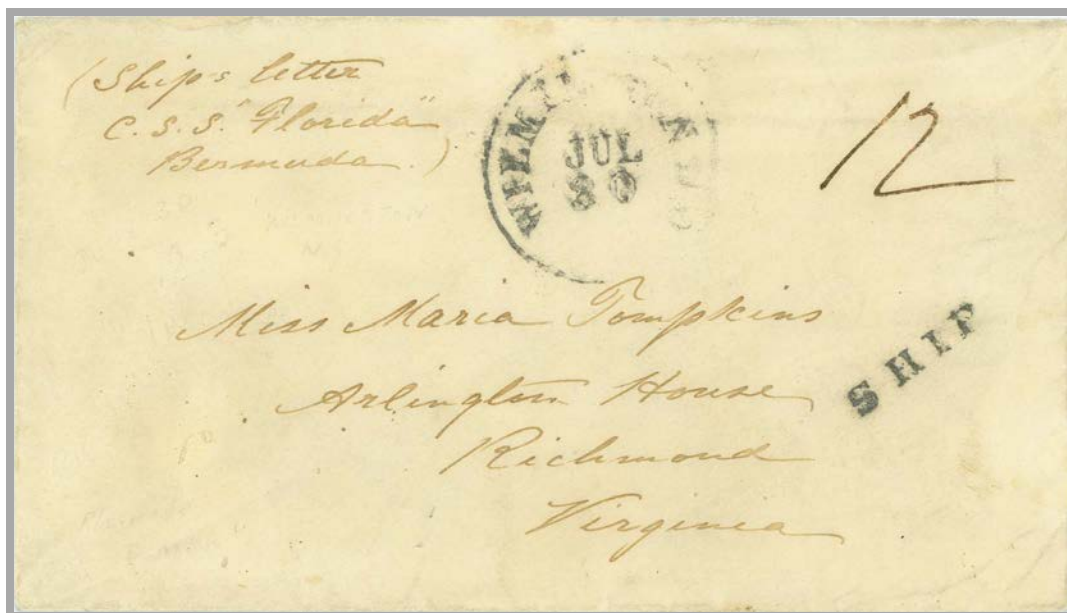 (Ship's letter
C.S.S. "Florida"
Bermuda.)
WILMI N.C.
JUL
30
12
SHIP
Miss Maria Tompkins
Arlington House
Richmond
Virginia